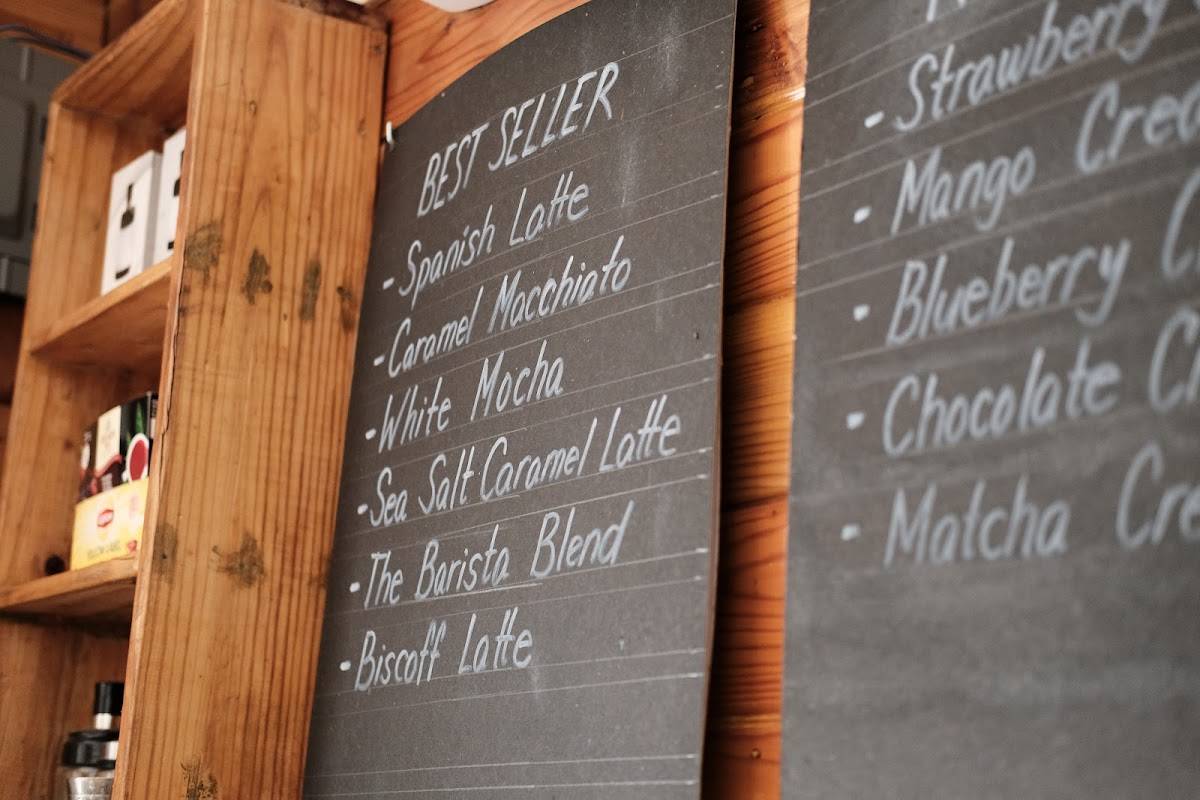 BEST SELLER
- Spanish Latte
- Caramel Macchiato
- White Mocha
- Sea Salt Caramel Latte
- The Barista Blend
- Biscoff Latte
- Strawberry
- Mango
- Blueberry
- Chocolate
- Matcha